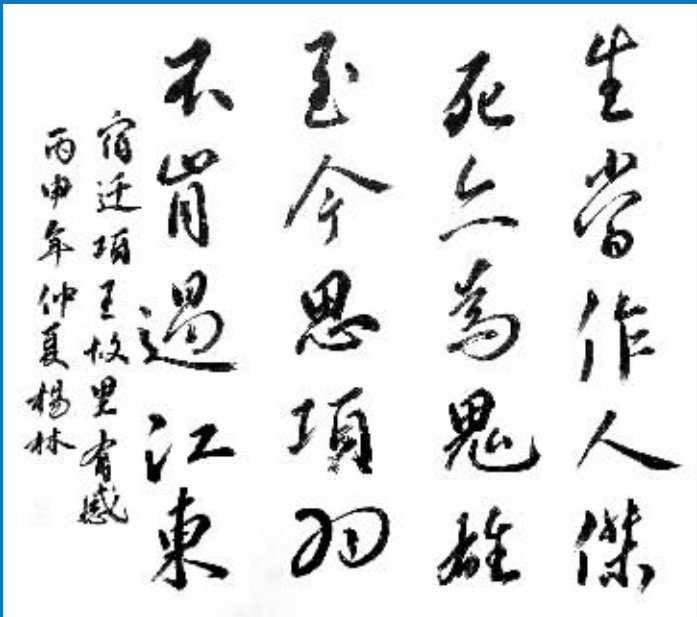 生當作人傑
死亦為鬼雄
至今思項羽
不肯過江東
宿迁項王故里有感
丙申年仲夏楊林